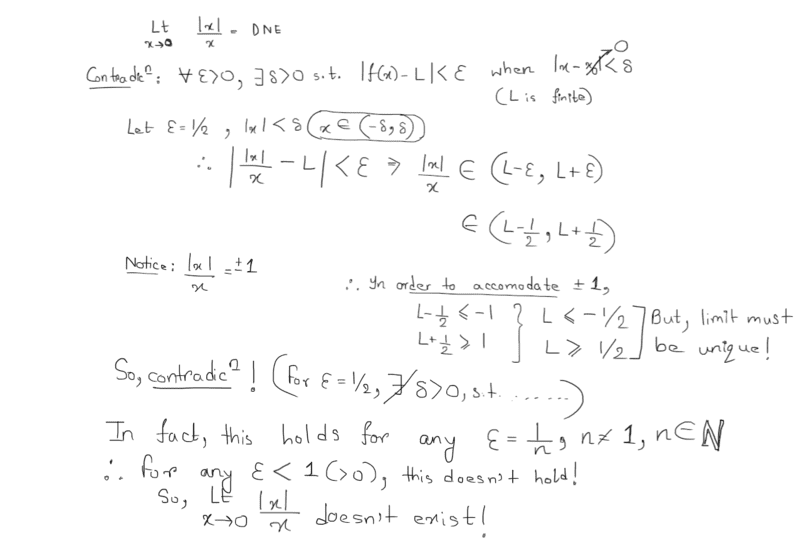 Lt x→0 |x|/x = DNE
Contradicⁿ: ∀ ε>0, ∃ δ>0 s.t. |f(x)-L|<ε when |x-x₀|<δ 0
(L is finite)
Let ε=1/2, |x|<δ (x ∈ (-δ,δ))
∴ | |x|/x - L | < ε ⇒ |x|/x ∈ (L-ε, L+ε)
∈ (L-1/2, L+1/2)
Notice: |x|/x = ±1
∴ In order to accomodate ±1,
L-1/2 ≤ -1 } L ≤ -1/2 ] But, limit must
L+1/2 ≥ 1 } L ≥ 1/2 ] be unique!
So, contradicⁿ! (for ε=1/2, ∄ δ>0, s.t. .......)
In fact, this holds for any ε = 1/n, n≠1, n∈ℕ
∴ for any ε < 1 (>0), this doesn't hold!
So, Lt x→0 |x|/x doesn't exist!